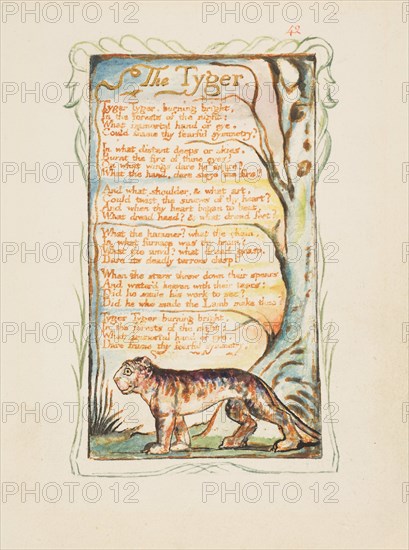 42
The Tyger
Tyger Tyger, burning bright,
In the forests of the night;
What immortal hand or eye,
Could frame thy fearful symmetry?
In what distant deeps or skies,
Burnt the fire of thine eyes?
On what wings dare he aspire?
What the hand, dare sieze the fire?
And what shoulder, & what art,
Could twist the sinews of thy heart?
And when thy heart began to beat,
What dread hand? & what dread feet?
What the hammer? what the chain,
In what furnace was thy brain?
What the anvil? what dread grasp,
Dare its deadly terrors clasp?
When the stars threw down their spears
And water'd heaven with their tears:
Did he smile his work to see?
Did he who made the Lamb make thee?
Tyger Tyger burning bright,
In the forests of the night:
What immortal hand or eye,
Dare frame thy fearful symmetry?
PHOTO12